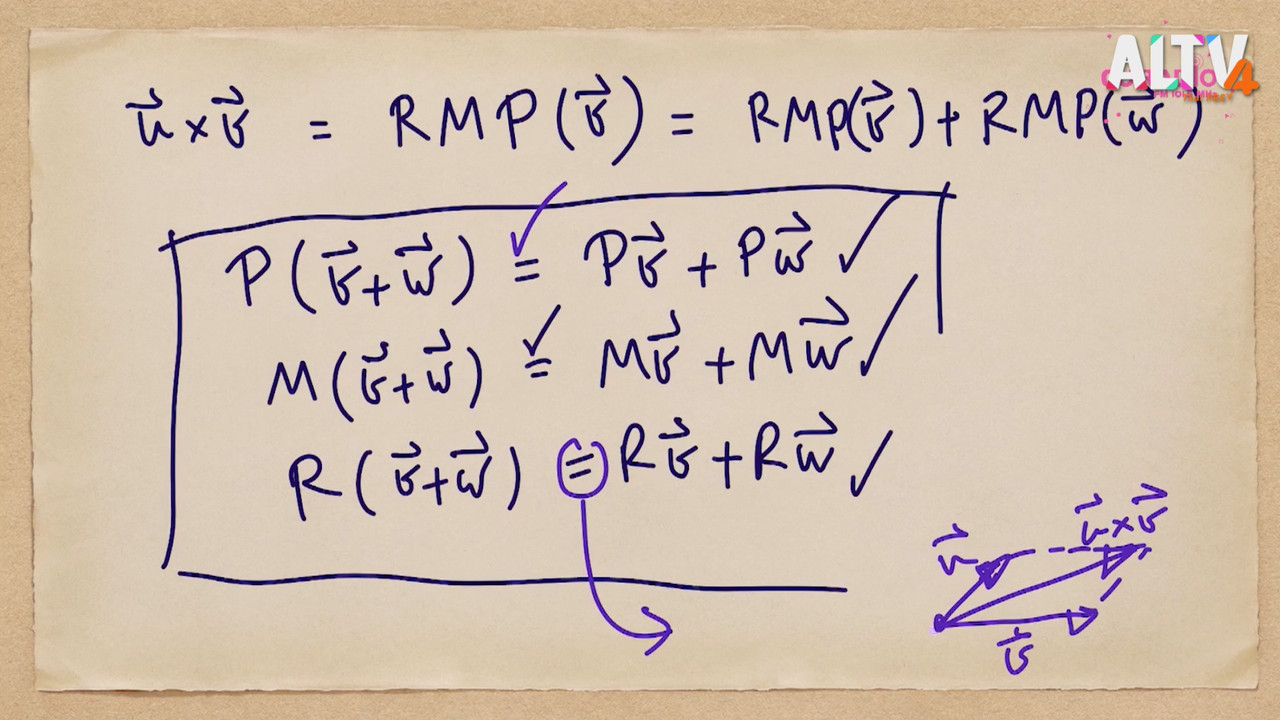 ALTV4
u⃗ × v⃗ = RMP(v⃗) = RMP(v⃗) + RMP(w⃗)
P(v⃗+w⃗) = Pv⃗ + Pw⃗ ✓
M(v⃗+w⃗) = Mv⃗ + Mw⃗ ✓
R(v⃗+w⃗) = Rv⃗ + Rw⃗ ✓
u⃗
u⃗×v⃗
v⃗